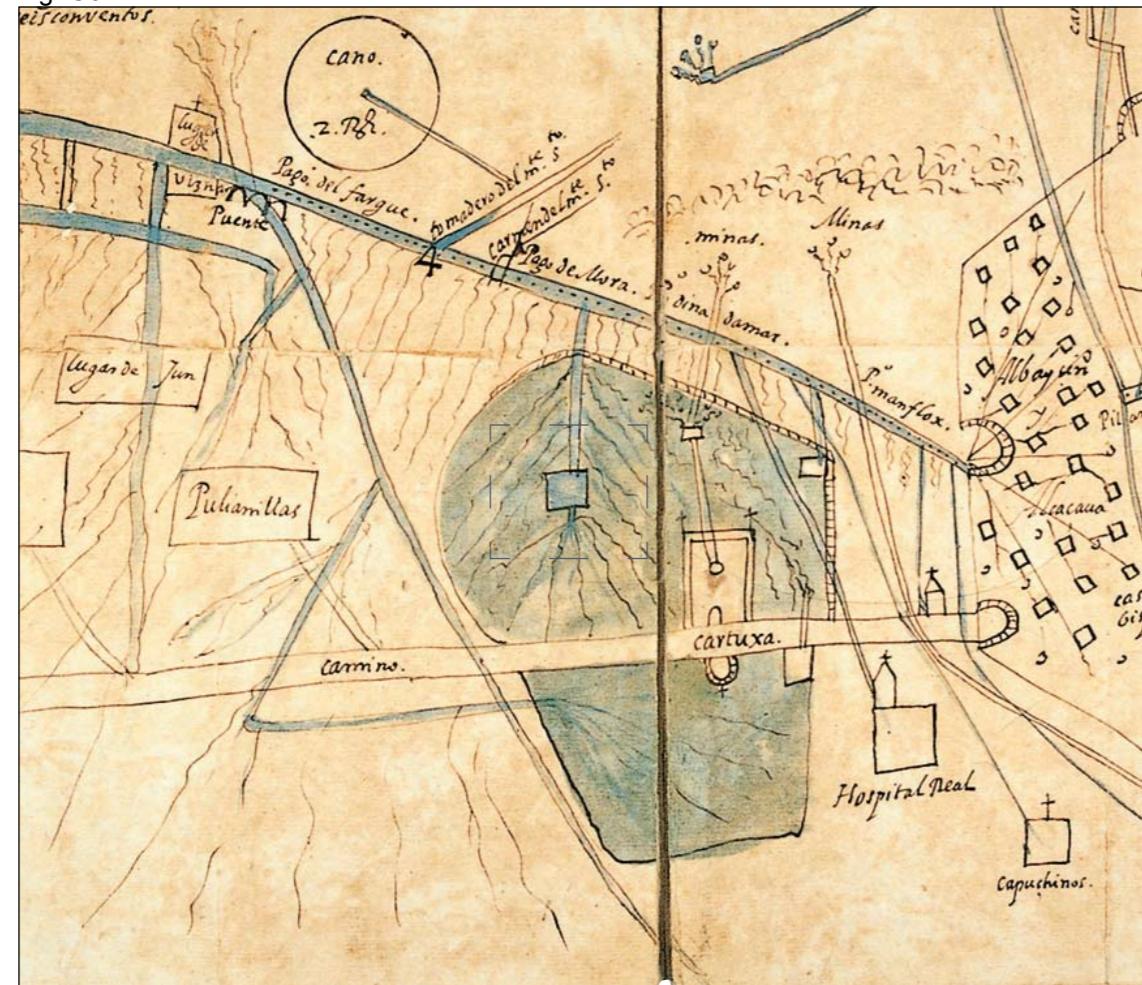 eis conventos.
cano.
Lugar
de
Viznar
Puente
Pago. del fargue.
tomadero del m.te s.to
Carmen del m.te s.to
4
Pago de Mora.
dina damar.
minas.
Minas
P.o manflox.
Albayzin
Alcacaua
Lugar de Jun
Pulianillas
camino.
cartuxa.
Hospital Real
Capuchinos.